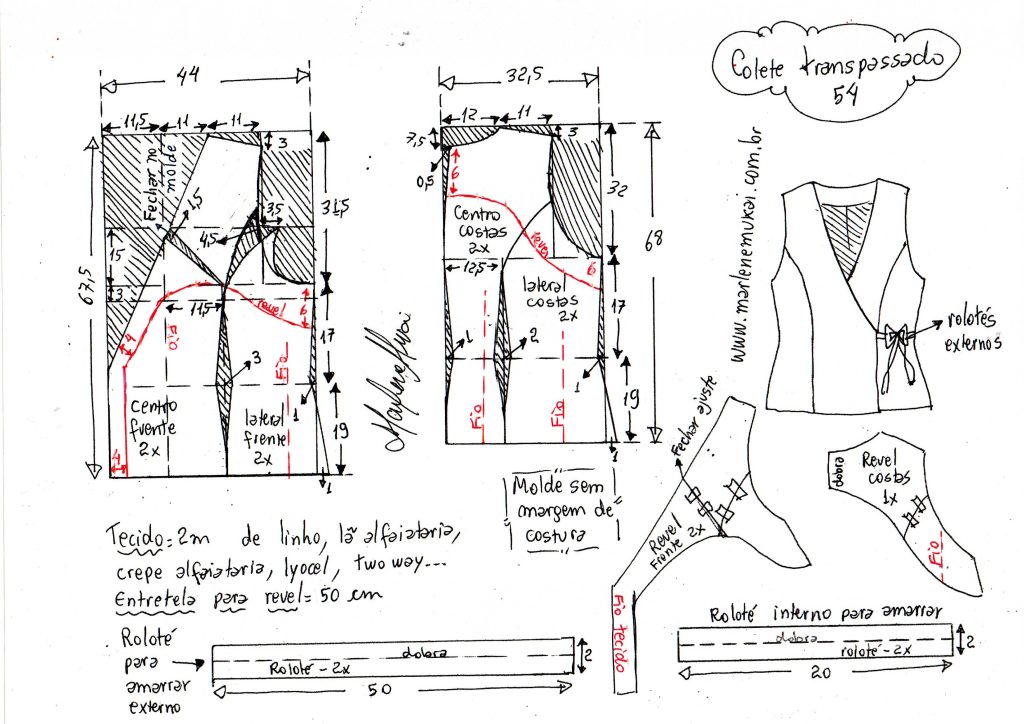 Colete transpassado
54
www.marlenemukai.com.br
44
11,5
11
11
3
Fechar no
molde
1,5
4,5
3,5
31,5
67,5
15
3
11,5
revel
6
4
Fio
Fio
17
3
1
centro
frente
2x
lateral
frente
2x
4
19
1
32,5
12
11
3
7,5
0,5
6
32
68
Centro
costas
2x
revel
12,5
6
lateral
costas
2x
17
1
2
1
Fio
Fio
19
1
Marlene Mukai
Molde sem
margem de
costura
rolotés
externos
Fechar ajuste
Revel
Frente 2x
Fio tecido
dobra
Revel
costas
1x
Fio
Tecido = 2m de linho, lã alfaiataria,
crepe alfaiataria, lyocel, two way...
Entretela para revel = 50 cm
Roloté
para
amarrar
externo
dobra
Roloté - 2x
2
50
Roloté interno para amarrar
dobra
rolote - 2x
2
20